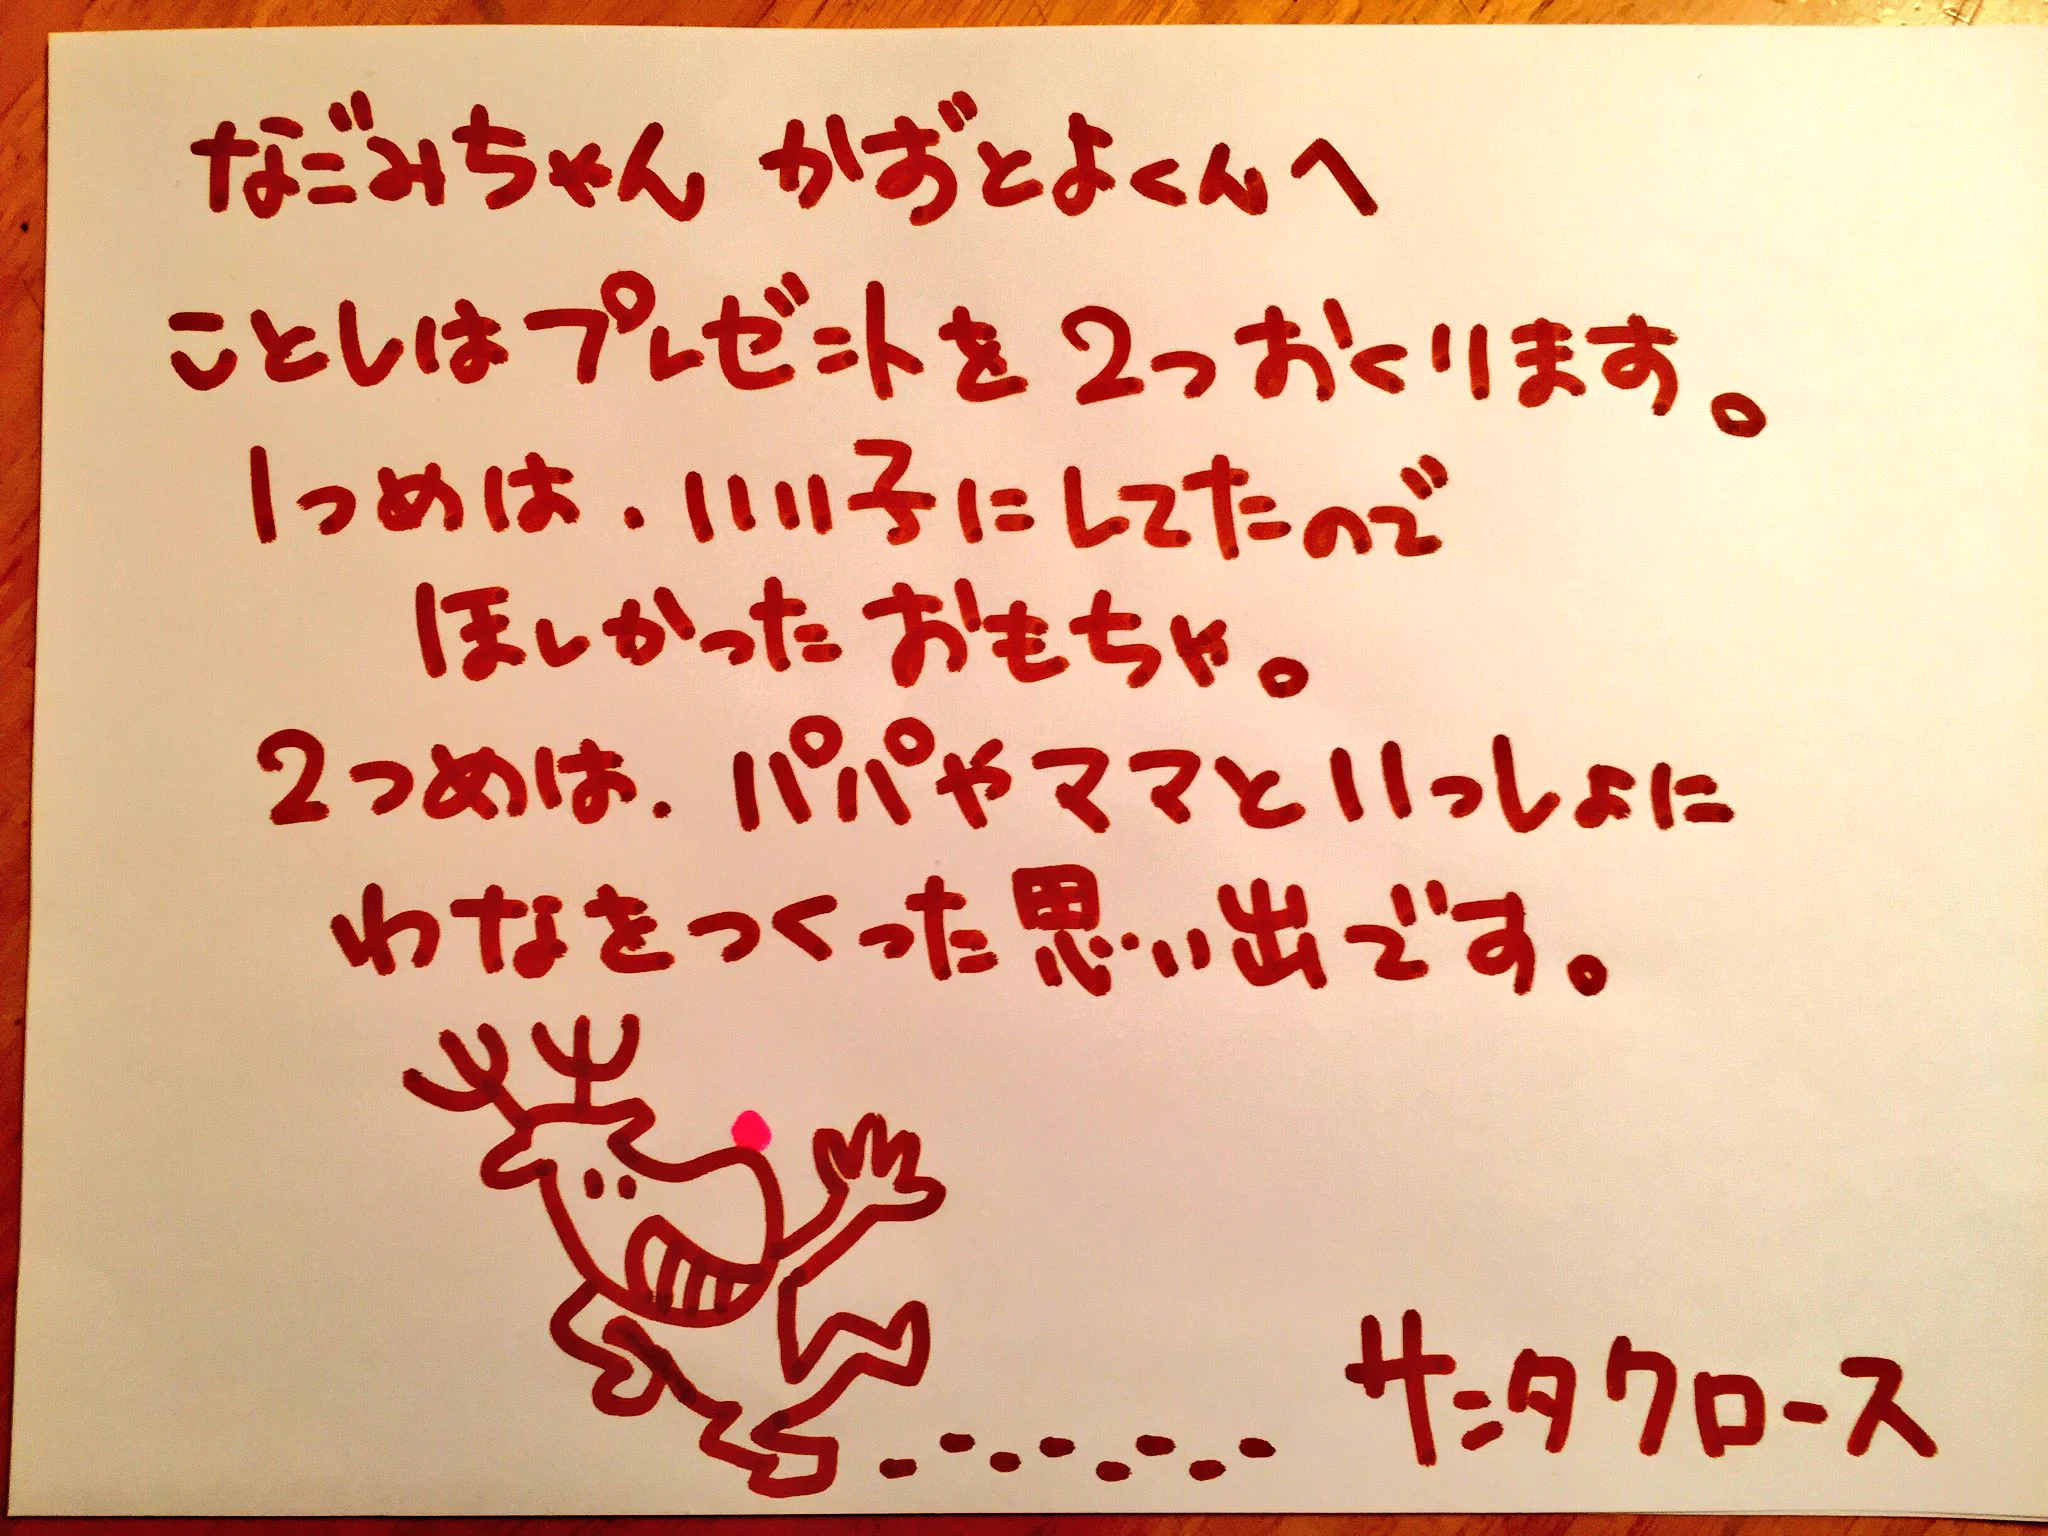 なごみちゃん かずとよくんへ
ことしはプレゼントを2つおくります。
1つめは、いい子にしてたので
ほしかったおもちゃ。
2つめは、パパやママといっしょに
わなをつくった思い出です。
サンタクロース